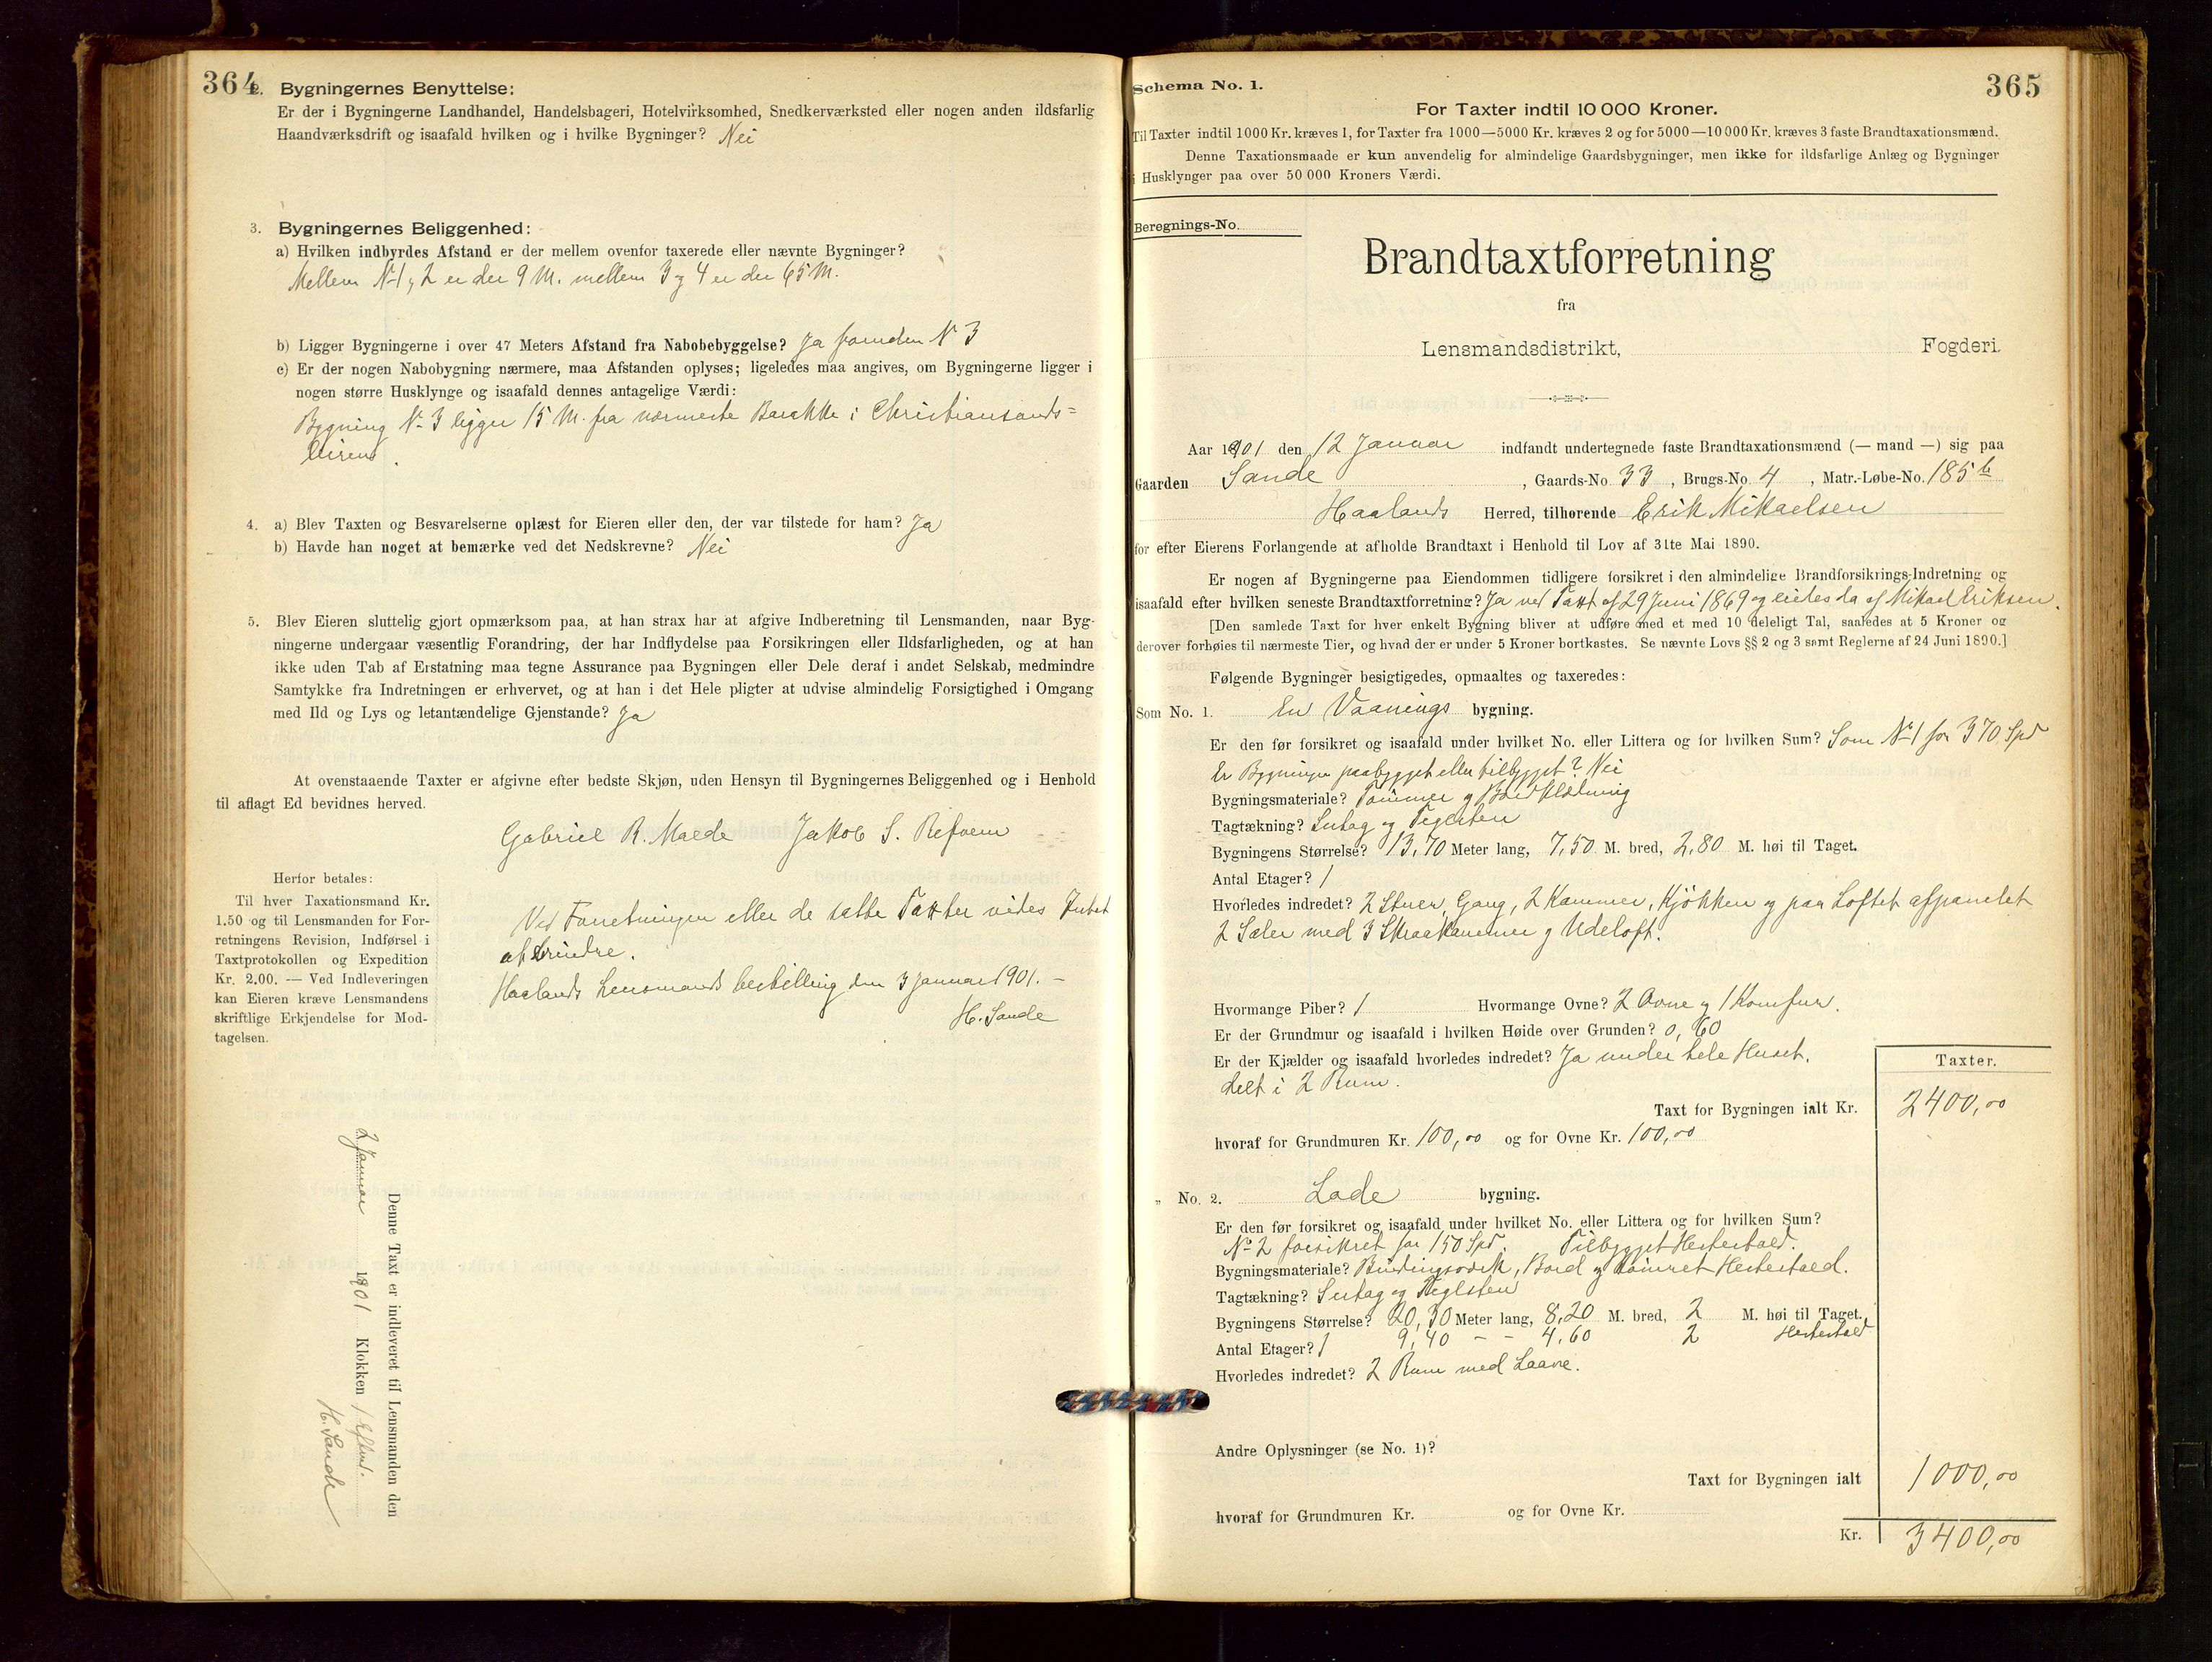 364
2. Bygningernes Benyttelse:
Er der i Bygningerne Landhandel, Handelsbageri, Hotelvirksomhed, Snedkerværksted eller nogen anden ildsfarlig
Haandværksdrift og isaafald hvilken og i hvilke Bygninger? Nei
3. Bygningernes Beliggenhed:
a) Hvilken indbyrdes Afstand er der mellem ovenfor taxerede eller nævnte Bygninger?
Mellem No 1 og 2 er der 9 M. mellem 3 og 4 er der 65 M.
b) Ligger Bygningerne i over 47 Meters Afstand fra Nabobebyggelse? Ja foruden No 3
c) Er der nogen Nabobygning nærmere, maa Afstanden oplyses; ligeledes maa angives, om Bygningerne ligger i
nogen større Husklynge og isaafald dennes antagelige Værdi:
Bygning No 3 ligger 15 M. fra nærmeste Barakke i Christiansands=
leiren.
4. a) Blev Taxten og Besvarelserne oplæst for Eieren eller den, der var tilstede for ham? Ja
b) Havde han noget at bemærke ved det Nedskrevne? Nei
5. Blev Eieren sluttelig gjort opmærksom paa, at han strax har at afgive Indberetning til Lensmanden, naar Byg-
ningerne undergaar væsentlig Forandring, der har Indflydelse paa Forsikringen eller Ildsfarligheden, og at han
ikke uden Tab af Erstatning maa tegne Assurance paa Bygningen eller Dele deraf i andet Selskab, medmindre
Samtykke fra Indretningen er erhvervet, og at han i det Hele pligter at udvise almindelig Forsigtighed i Omgang
med Ild og Lys og letantændelige Gjenstande? Ja
At ovenstaaende Taxter er afgivne efter bedste Skjøn, uden Hensyn til Bygningernes Beliggenhed og i Henhold
til aflagt Ed bevidnes herved.
Gabriel R. Malde Jakob S. Refvem
Herfor betales:
Til hver Taxationsmand Kr.
1.50 og til Lensmanden for For-
retningens Revision, Indførsel i
Taxtprotokollen og Expedition
Kr. 2.00. — Ved Indleveringen
kan Eieren kræve Lensmandens
skriftlige Erkjendelse for Mod-
tagelsen.
Ved Forretningen eller de satte Taxter vides Intet
at erindre.
Haalands Lensmands bestilling den 3 Januar 1901. –
H. Sande
Denne Taxt er indleveret til Lensmanden den
2 Januar 1901 Klokken 1 Efterm.
H. Sande
365
Schema No. 1.
For Taxter indtil 10 000 Kroner.
Til Taxter indtil 1000 Kr. kræves 1, for Taxter fra 1000—5000 Kr. kræves 2 og for 5000—10 000 Kr. kræves 3 faste Brandtaxationsmænd.
Denne Taxationsmaade er kun anvendelig for almindelige Gaardsbygninger, men ikke for ildsfarlige Anlæg og Bygninger
i Husklynger paa over 50 000 Kroners Værdi.
Beregnings-No.
Brandtaxtforretning
fra
Lensmandsdistrikt, Fogderi.
Aar 1901 den 12 Januar indfandt undertegnede faste Brandtaxationsmænd (— mand —) sig paa
Gaarden Sande, Gaards-No. 33, Brugs-No. 4, Matr.-Løbe-No. 185 b
Haalands Herred, tilhørende Erik Mikaelsen
for efter Eierens Forlangende at afholde Brandtaxt i Henhold til Lov af 31te Mai 1890.
Er nogen af Bygningerne paa Eiendommen tidligere forsikret i den almindelige Brandforsikrings-Indretning og
isaafald efter hvilken seneste Brandtaxtforretning? Ja ved Taxt af 29 Juni 1869 og eiedes da af Mikael Eriksen.
[Den samlede Taxt for hver enkelt Bygning bliver at udføre med et med 10 deleligt Tal, saaledes at 5 Kroner og
derover forhøies til nærmeste Tier, og hvad der er under 5 Kroner bortkastes. Se nævnte Lovs §§ 2 og 3 samt Reglerne af 24 Juni 1890.]
Følgende Bygninger besigtigedes, opmaaltes og taxeredes:
Som No. 1. En Vaanings bygning.
Er den før forsikret og isaafald under hvilket No. eller Littera og for hvilken Sum? Som No 1 for 370 Spd
Er Bygningen paabygget eller tilbygget? Nei
Bygningsmateriale? Tømmer og Bordklædning
Tagtækning? Sutag og Teglsten
Bygningens Størrelse? 13,70 Meter lang, 7,50 M. bred, 2,80 M. høi til Taget.
Antal Etager? 1
Hvorledes indredet? 2 Stuer, Gang, 2 Kammer, Kjøkken og paa Loftet afpanelet
2 Saler med 3 Skraakammer og Udeloft.
Hvormange Piber? 1 Hvormange Ovne? 2 Ovne og 1 Komfur.
Er der Grundmur og isaafald i hvilken Høide over Grunden? 0,60
Er der Kjælder og isaafald hvorledes indredet? Ja under hele Huset.
delt i 2 Rum.
Taxter.
Taxt for Bygningen ialt Kr. 2400,00
hvoraf for Grundmuren Kr. 100,00 og for Ovne Kr. 100,00
„ No. 2. Lade bygning.
Er den før forsikret og isaafald under hvilket No. eller Littera og for hvilken Sum?
No 2 forsikret for 150 Spd. Tilbygget Hestestald.
Bygningsmateriale? Bindingsværk, Bord og tømret Hestestald.
Tagtækning? Sutag og Teglsten
Bygningens Størrelse? 20,30 Meter lang, 8,20 M. bred, 2 M. høi til Taget.
Antal Etager? 1 9,40 – – 4,60 2 Hestestald
Hvorledes indredet? 2 Rum med Laave.
Andre Oplysninger (se No. 1)?
Taxt for Bygningen ialt 1000,00
hvoraf for Grundmuren Kr. og for Ovne Kr.
Kr. 3400,00